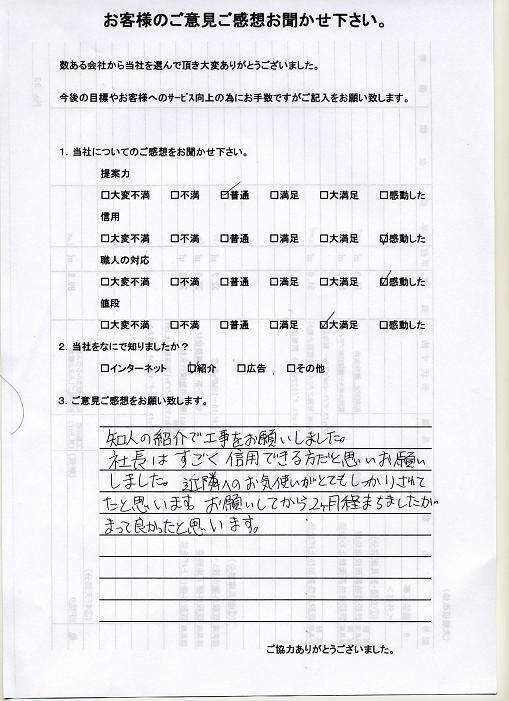 お客様のご意見ご感想お聞かせ下さい。
数ある会社から当社を選んで頂き大変ありがとうございました。
今後の目標やお客様へのサービス向上の為にお手数ですがご記入をお願い致します。
1．当社についてのご感想をお聞かせ下さい。
提案力
□大変不満 □不満 ☑普通 □満足 □大満足 □感動した
信用
□大変不満 □不満 □普通 □満足 □大満足 ☑感動した
職人の対応
□大変不満 □不満 □普通 □満足 □大満足 ☑感動した
値段
□大変不満 □不満 □普通 □満足 ☑大満足 □感動した
2．当社をなにで知りましたか？
□インターネット ☑紹介 □広告 □その他
3．ご意見ご感想をお願い致します。
知人の紹介で工事をお願いしました。
社長はすごく信用できる方だと思いお願い
しました。近隣へのお気使いがとてもしっかりされて
たと思います。お願いしてから2ヶ月経まちましたが
まって良かったと思います。
ご協力ありがとうございました。